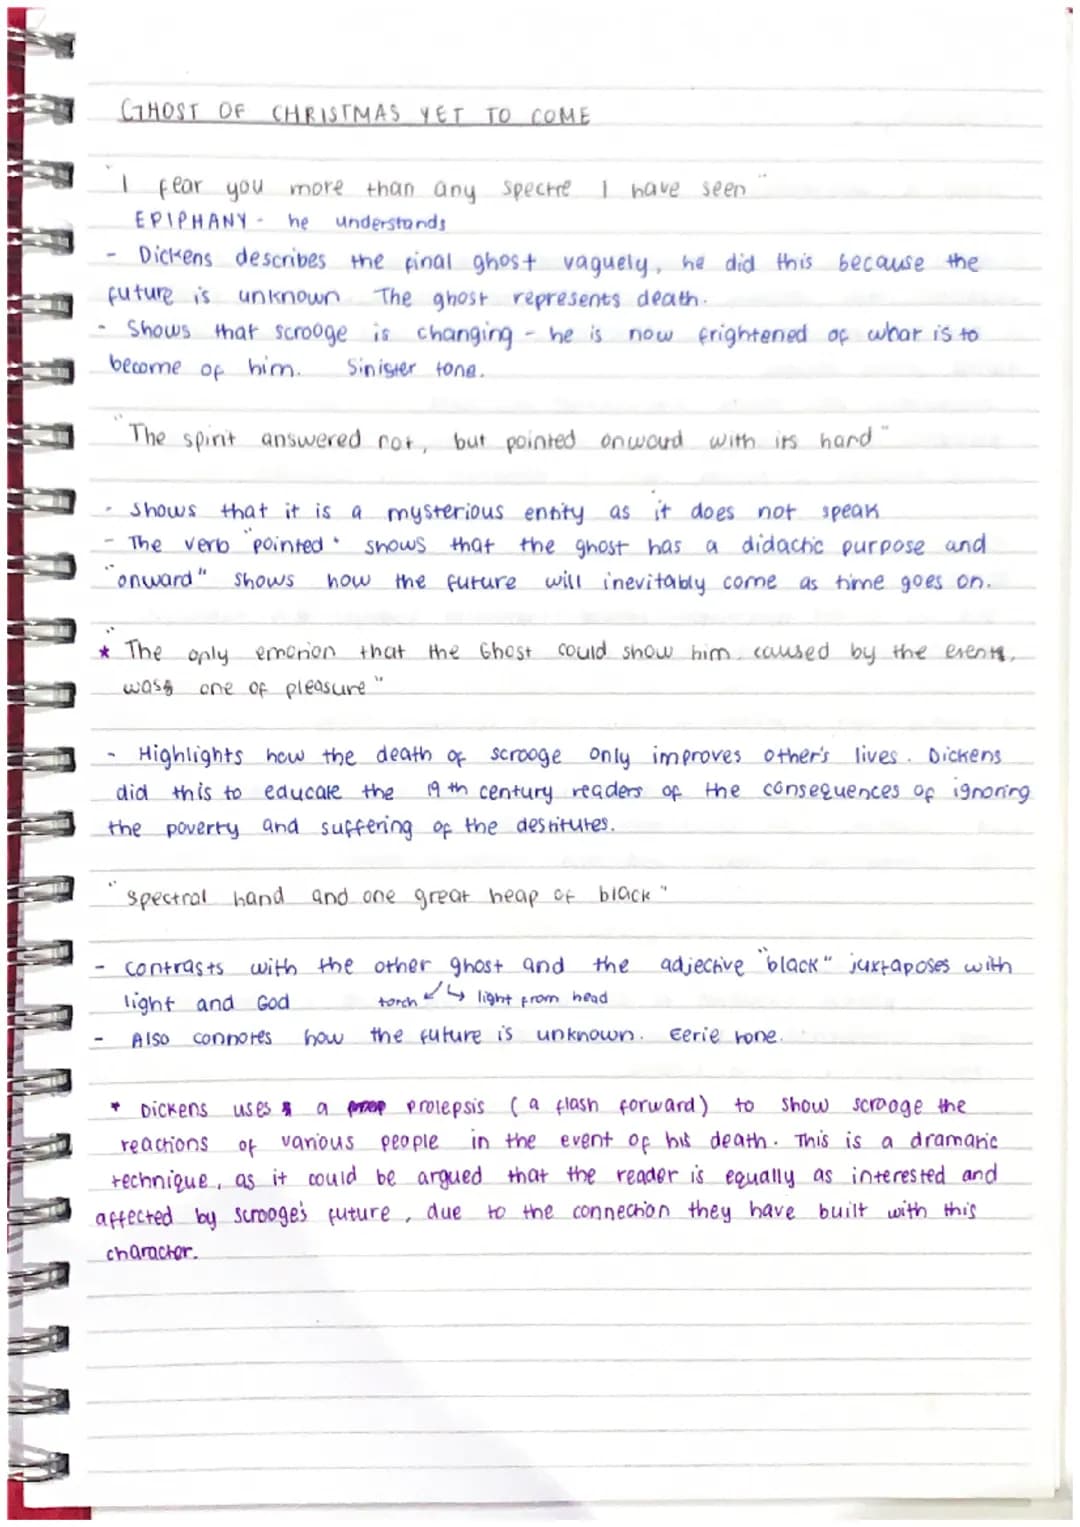 GHOST OF CHRISTMAS YET TO COME
"I fear you more than any spectre I have seen"
EPIPHANY - he understands
- Dickens describes the final ghost vaguely, he did this because the
future is unknown The ghost represents death.
- Shows that scrooge is changing - he is now frightened of what is to
become of him. Sinister tone.
"The spirit answered not, but pointed onward with its hand"
- Shows that it is a mysterious entity as it does not speak
- The verb "pointed" shows that the ghost has a didactic purpose and
"onward" shows how the future will inevitably come as time goes on.
* "The only emotion that the Ghost could show him, caused by the event,
was one of pleasure"
- Highlights how the death of scrooge only improves other's lives. Dickens
did this to educate the 19th century readers of the consequences of ignoring
the poverty and suffering of the destitutes.
"spectral hand and one great heap of black"
- contrasts with the other ghost and the adjective "black" juxtaposes with
light and God torch ↙↳ light from head
- Also connotes how the future is unknown. Eerie tone.
* Dickens uses a prolepsis (a flash forward) to show scrooge the
reactions of various people in the event of his death. This is a dramatic
technique, as it could be argued that the reader is equally as interested and
affected by scrooge's future, due to the connection they have built with this
character.